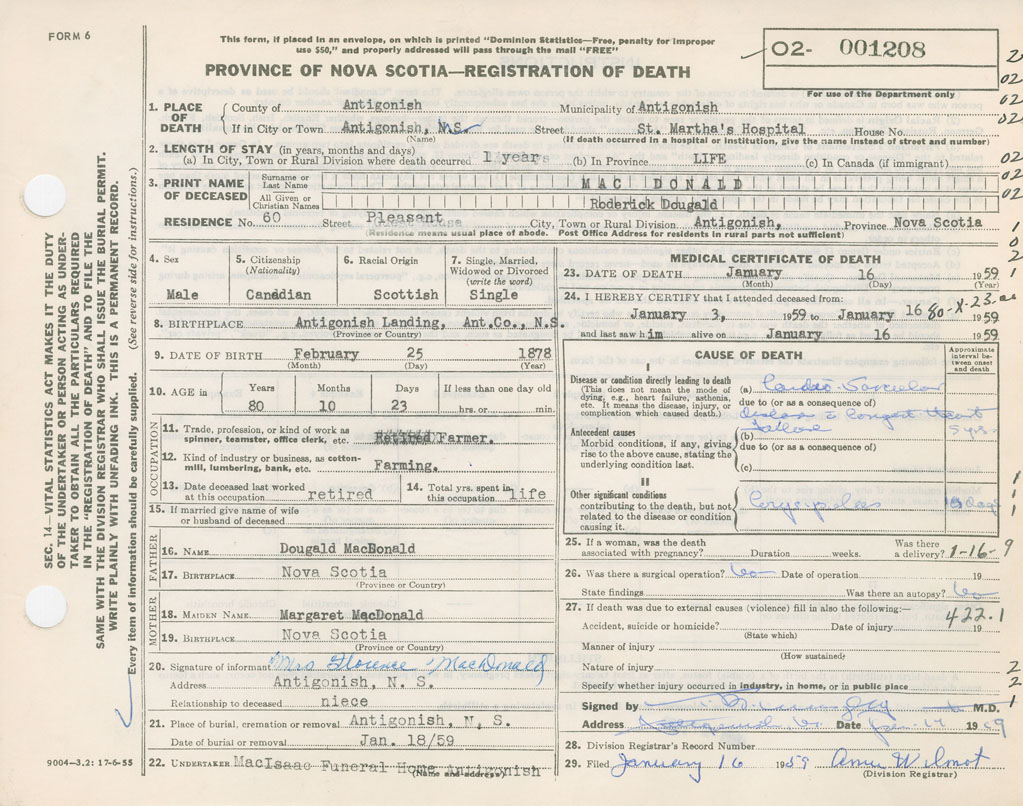 FORM 6
This form, if placed in an envelope, on which is printed "Dominion Statistics—Free, penalty for improper
use $50," and properly addressed will pass through the mail "FREE"
PROVINCE OF NOVA SCOTIA—REGISTRATION OF DEATH
02- 001208
For use of the Department only
SEC. 14—VITAL STATISTICS ACT MAKES IT THE DUTY
OF THE UNDERTAKER OR PERSON ACTING AS UNDER-
TAKER TO OBTAIN ALL THE PARTICULARS REQUIRED
IN THE "REGISTRATION OF DEATH" AND TO FILE THE
SAME WITH THE DIVISION REGISTRAR WHO SHALL ISSUE THE BURIAL PERMIT.
WRITE PLAINLY WITH UNFADING INK. THIS IS A PERMANENT RECORD.
Every item of information should be carefully supplied. (See reverse side for instructions.)
1. PLACE OF DEATH County of Antigonish Municipality of Antigonish
If in City or Town Antigonish, N.S. Street St. Martha's Hospital House No.
(Name) (If death occurred in a hospital or institution, give the name instead of street and number)
2. LENGTH OF STAY (in years, months and days)
(a) In City, Town or Rural Division where death occurred 1 years (b) In Province LIFE (c) In Canada (if immigrant)
3. PRINT NAME OF DECEASED Surname or Last Name MAC DONALD
All Given or Christian Names Roderick Dougald
RESIDENCE No. 60 Street Pleasant City, Town or Rural Division Antigonish, Province Nova Scotia
(Residence means usual place of abode. Post Office Address for residents in rural parts not sufficient)
4. Sex 5. Citizenship (Nationality) 6. Racial Origin 7. Single, Married, Widowed or Divorced (write the word)
Male Canadian Scottish Single
8. BIRTHPLACE Antigonish Landing, Ant.Co., N.S.
(Province or Country)
9. DATE OF BIRTH February 25 1878
(Month) (Day) (Year)
10. AGE in Years Months Days If less than one day old
80 10 23 hrs. or min.
OCCUPATION
11. Trade, profession, or kind of work as spinner, teamster, office clerk, etc. Retired Farmer.
12. Kind of industry or business, as cotton-mill, lumbering, bank, etc. Farming.
13. Date deceased last worked at this occupation retired 14. Total yrs. spent in this occupation life
15. If married give name of wife or husband of deceased
FATHER
16. NAME Dougald MacDonald
17. BIRTHPLACE Nova Scotia
(Province or Country)
MOTHER
18. MAIDEN NAME Margaret MacDonald
19. BIRTHPLACE Nova Scotia
(Province or Country)
20. Signature of informant Mrs Florence MacDonald
Address Antigonish, N. S.
Relationship to deceased niece
21. Place of burial, cremation or removal Antigonish, N. S.
Date of burial or removal Jan. 18/59
22. UNDERTAKER MacIsaac Funeral Home Antigonish
(Name and address)
9004—3.2: 17-6-55
MEDICAL CERTIFICATE OF DEATH
23. DATE OF DEATH January 16 1959
(Month) (Day) (Year)
24. I HEREBY CERTIFY that I attended deceased from:
January 3, 1959 to January 16 1959
80-X-23
and last saw him alive on January 16 1959
CAUSE OF DEATH
Approximate interval between onset and death
I
Disease or condition directly leading to death (a)
(This does not mean the mode of dying, e.g., heart failure, asthma, etc. It means the disease, injury, or complication which caused death.)
due to (or as a consequence of)
Disease Congest Heart
Failure 5 yrs.
Antecedent causes
Morbid conditions, if any, giving rise to the above cause, stating the underlying condition last.
(b)
due to (or as a consequence of)
(c)
II
Other significant conditions
contributing to the death, but not related to the disease or condition causing it.
25. If a woman, was the death associated with pregnancy? Duration weeks. Was there a delivery?
1-16-9
26. Was there a surgical operation? Date of operation 19
State findings Was there an autopsy?
27. If death was due to external causes (violence) fill in also the following:—
422.1
Accident, suicide or homicide? Date of injury 19
(State which)
Manner of injury
(How sustained)
Nature of injury
Specify whether injury occurred in industry, in home, or in public place
Signed by M.D.
Address Date Jan 17 1959
28. Division Registrar's Record Number
29. Filed January 16 1959 Wilmot
(Division Registrar)
2
02
02
02
02
02
02
1
0
2
1
1
1
1
2
2
1